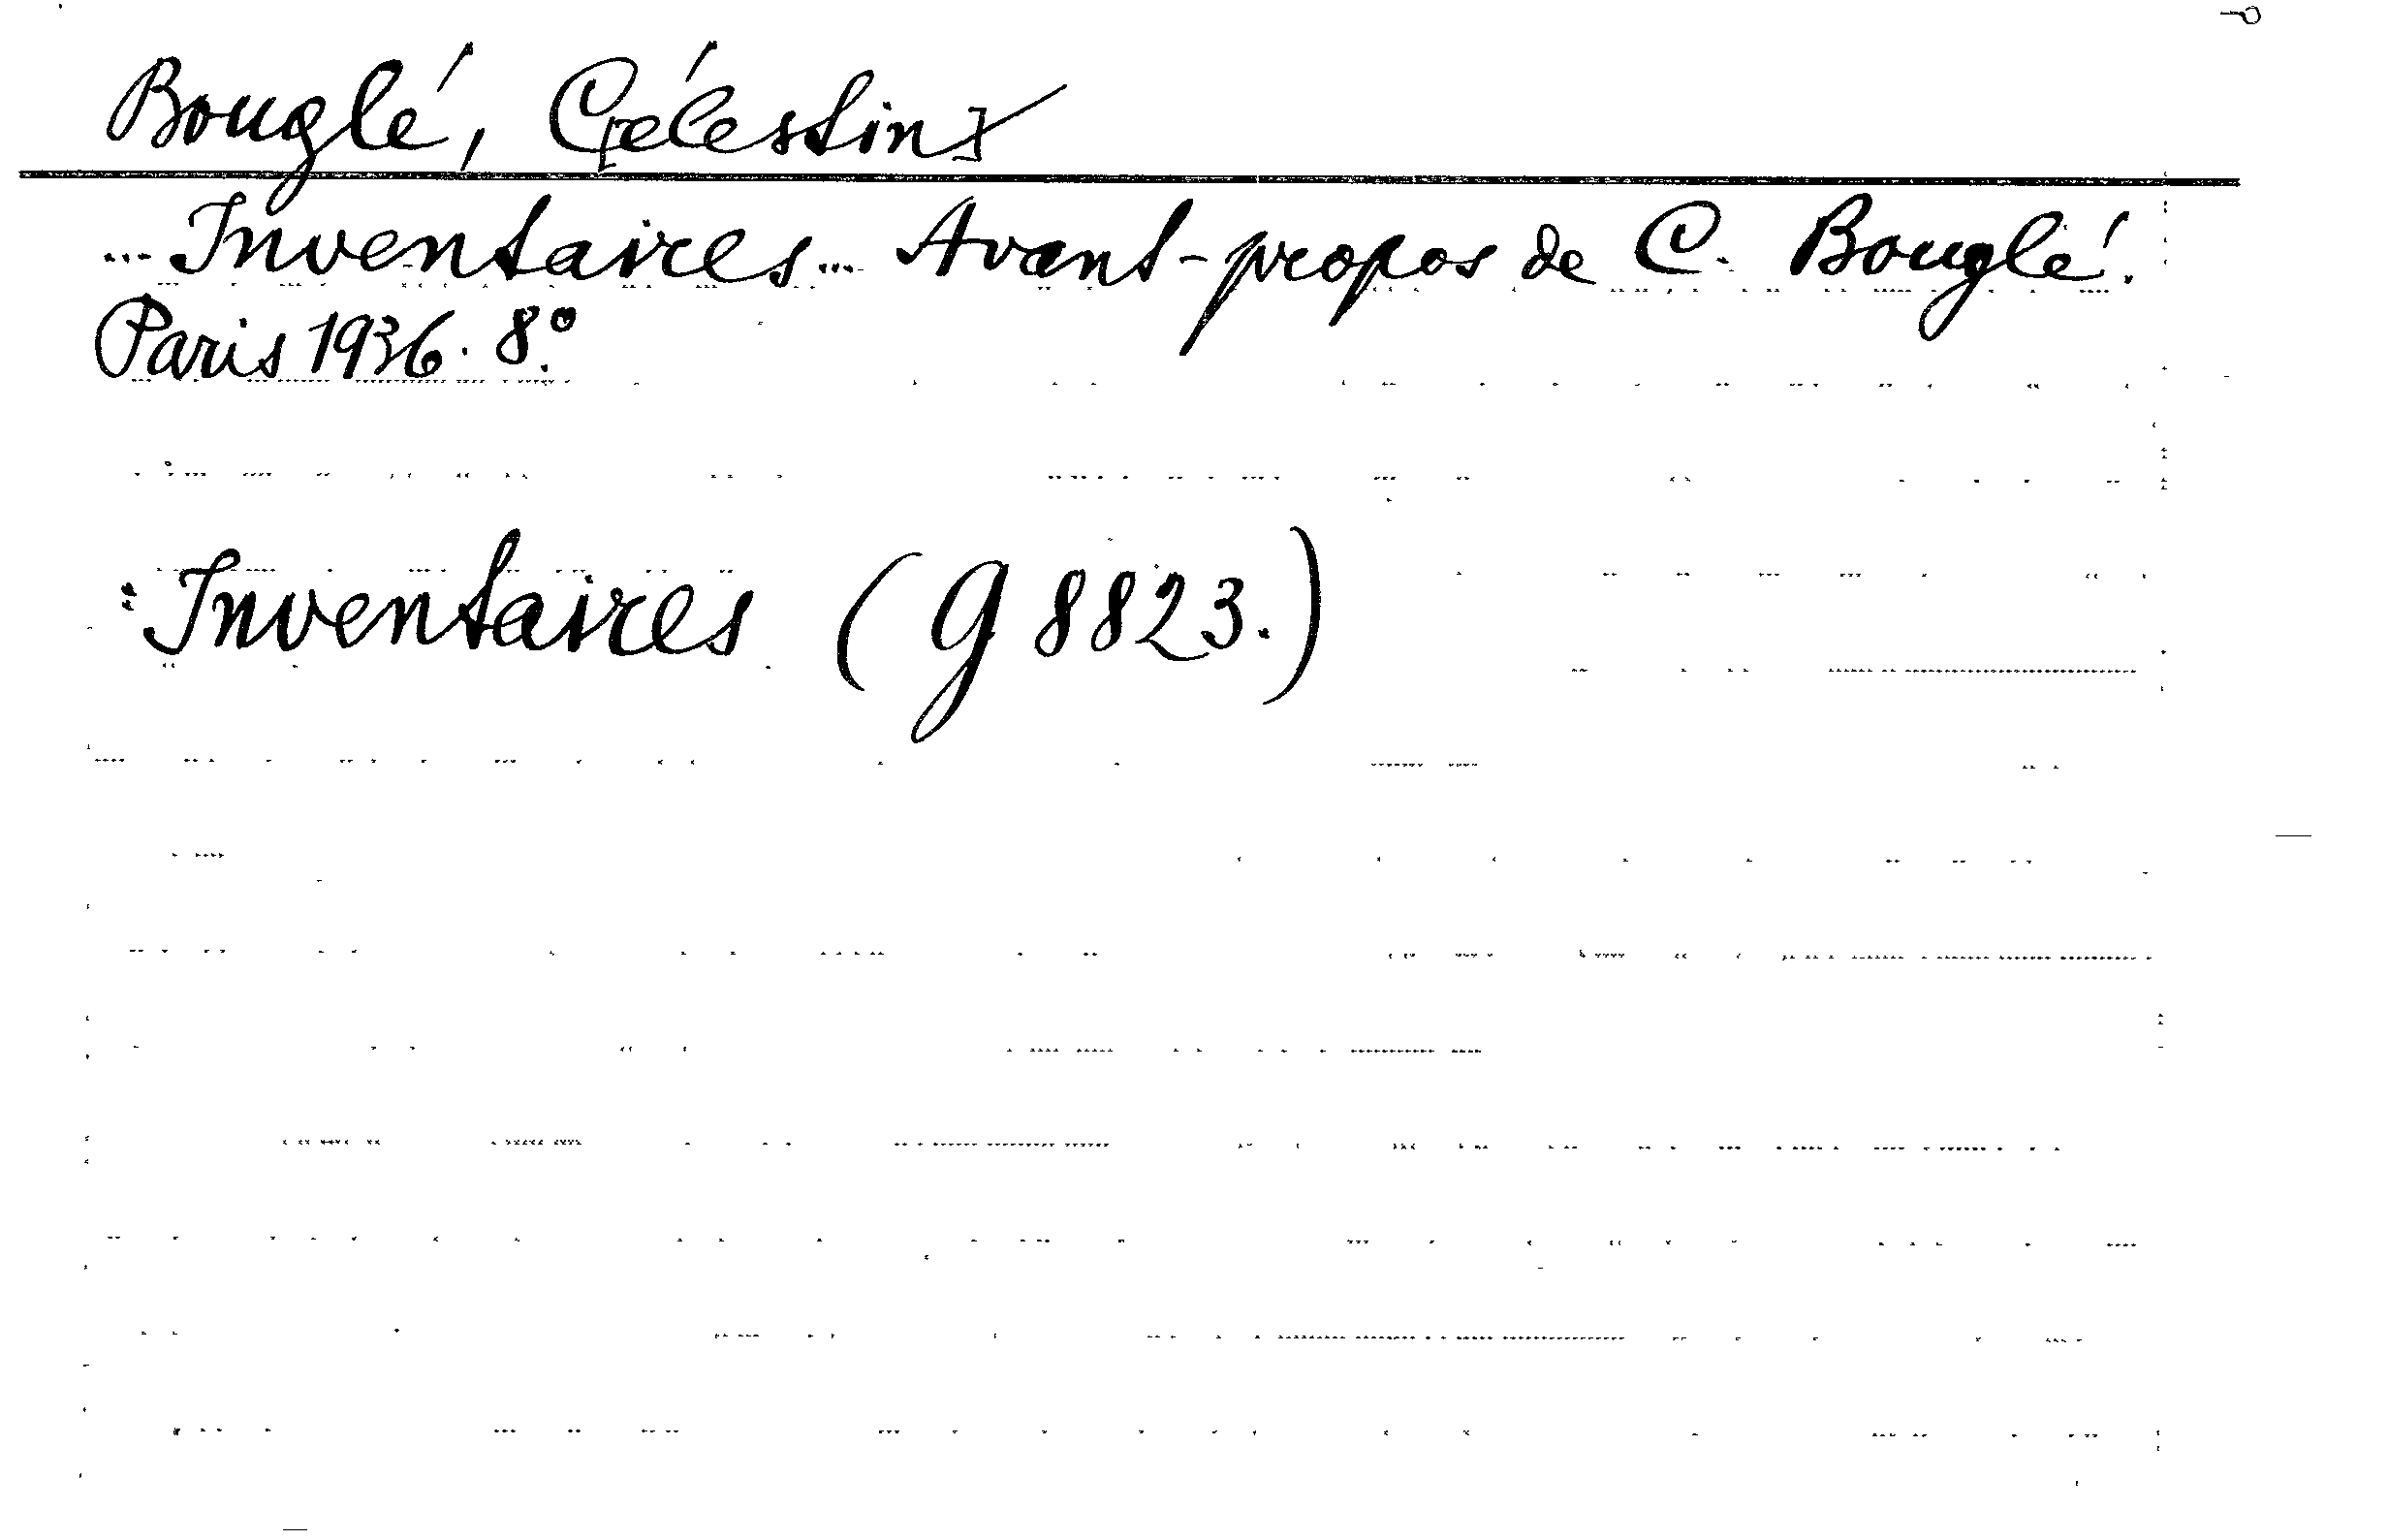 Bouglé, C[élestin]
... Inventaires ... Avant-propos de C. Bouglé.
Paris 1936. 8º.
: Inventaires (G 8823.)